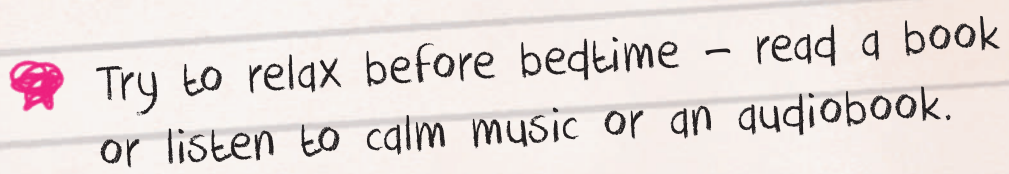 Try to relax before bedtime – read a book
or listen to calm music or an audiobook.